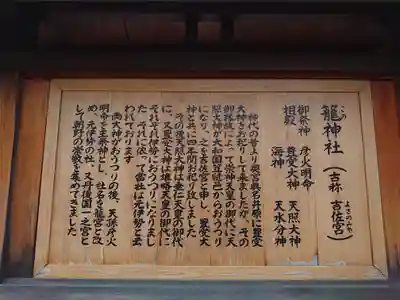 籠神社（古称 吉佐宮）
この
よさのみや
御祭神 彦火明命 天照大神
相殿 豊受大神 天水分神
海神
神代の昔より奥宮真名井原に豊受
大神をお祀りして来ましたが、その
御縁故によって崇神天皇の御代に天
照大神が大和国笠縫邑からおうつり
になり、之を吉佐宮と申し、豊受大
神と共に四年間お祀り致しました
その後天照大神は垂仁天皇の御代
に、又豊受大神は雄略天皇の御代に
それぞれ伊勢におうつりになりまし
た。それに依って當社は元伊勢と云
われております
両大神がおうつりの後、天孫彦火
明命を主祭神とし、社名を籠宮と改
め、元伊勢の社、又丹後国一之宮と
して朝野の崇敬を集めてきました